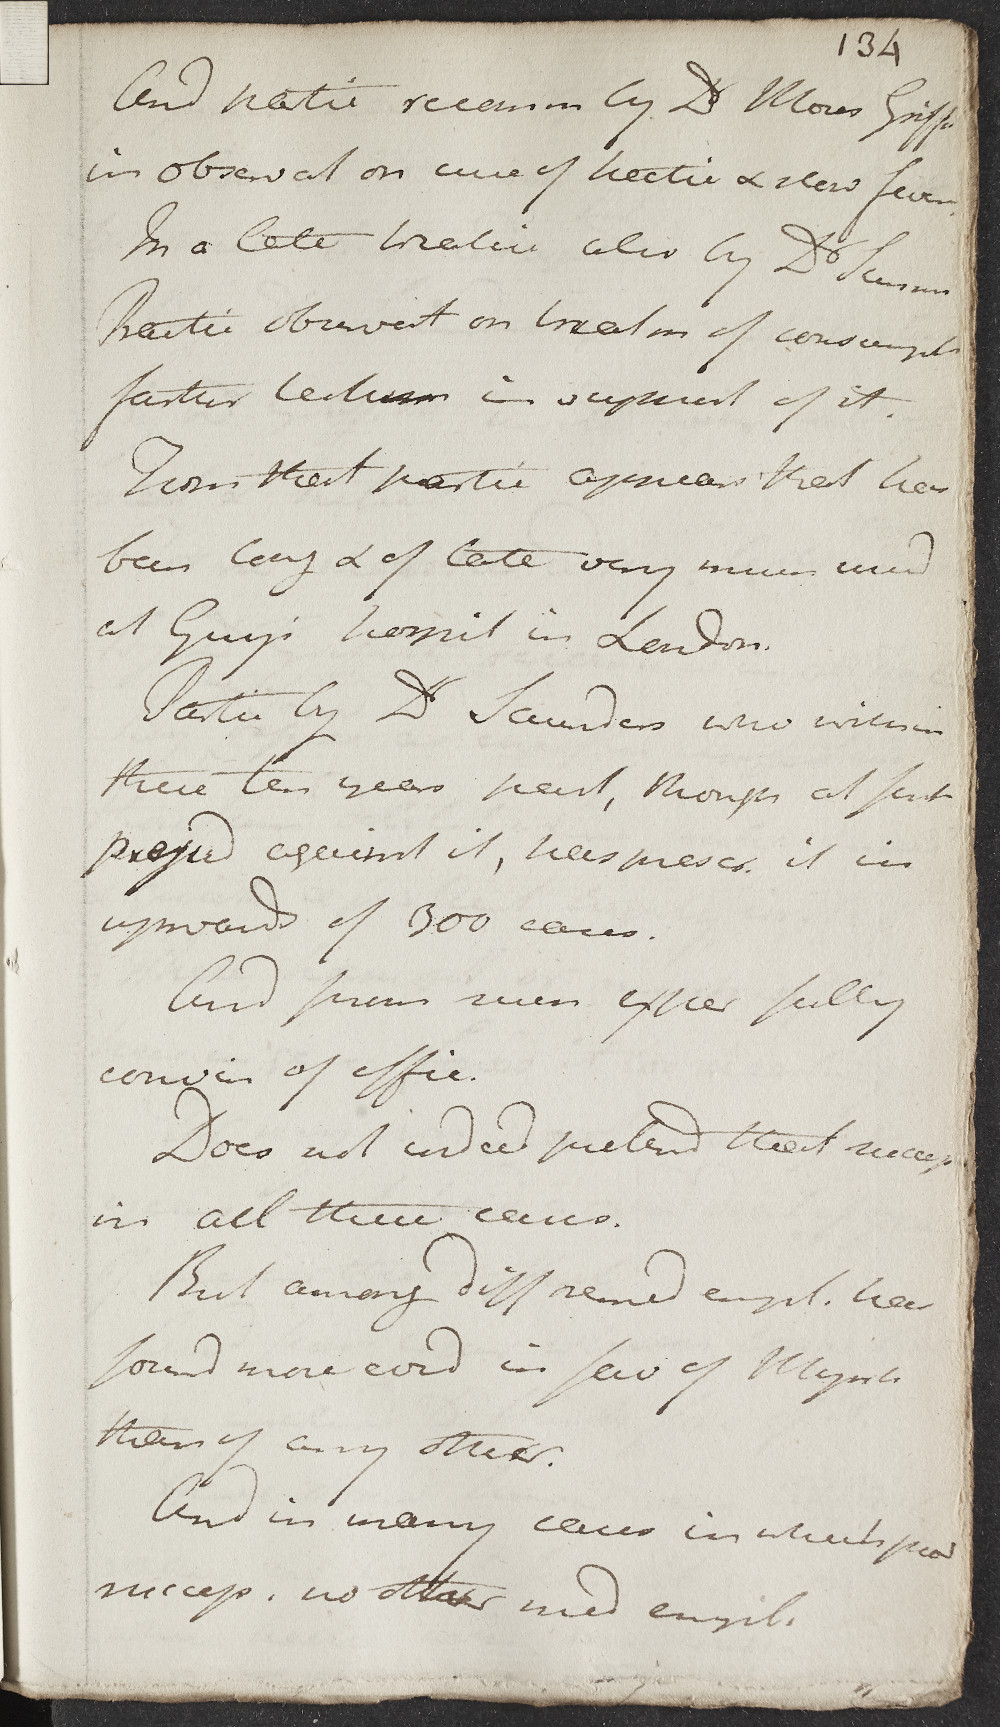 134
And partic recomm by Dr Moses Griffi
in observat on cure of hectic & slow fever.
In a late treatise also by Dr Simmon
Practic observat on treatm of consumpt
farther testimon in support of it.
From that partic appears that has
been long & of late very much used
at Guy's hospit in London.
Partic by Dr Saunders who within
these ten years past, though at first
prejud against it, has prescr. it in
upwards of 300 cases.
And from own exper fully
convin of effic.
Does not indeed pretend that succesf
in all these cases.
But among diff remed empl. has
found more evid in fav of Myrrh
than of any other.
And in many cases in which prov
succesf. no other med empl.